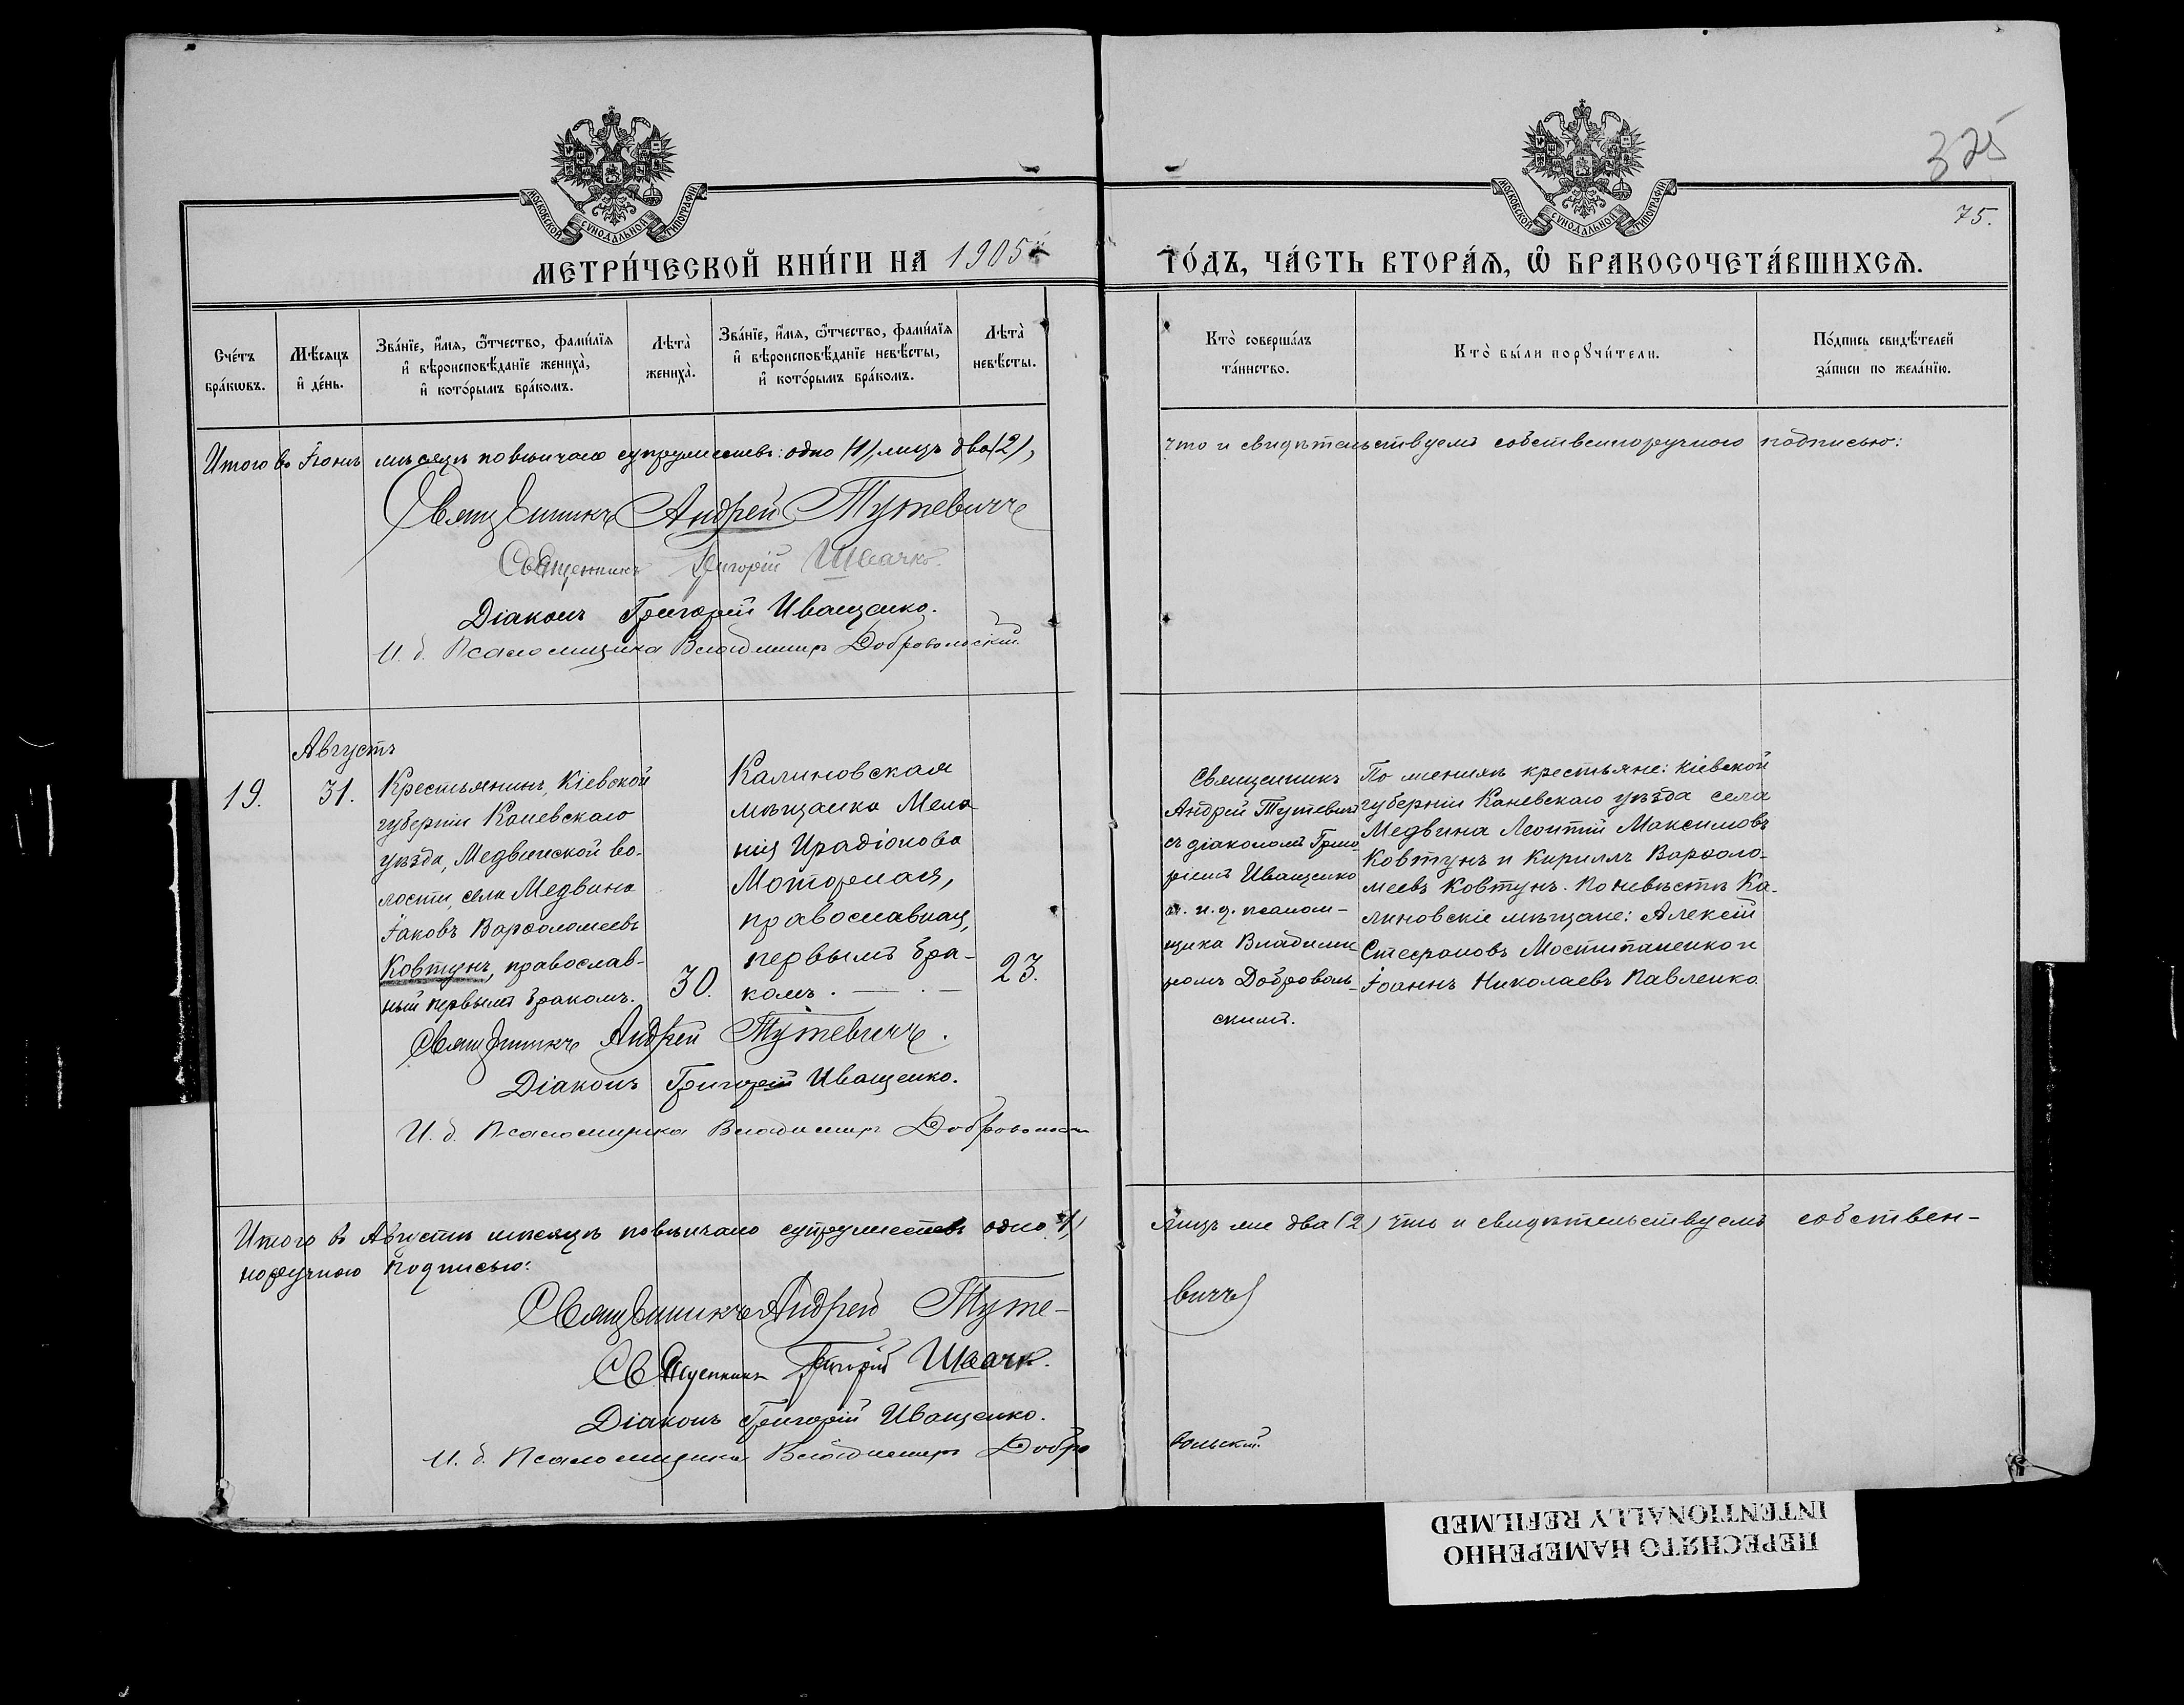 325
75.
МОСКОВСКОЙ СѴНОДАЛЬНОЙ ТИПОГРАФІИ
МОСКОВСКОЙ СѴНОДАЛЬНОЙ ТИПОГРАФІИ
МЕТРИ́ЧЕСКОЙ КНИ́ГИ НА 1905 ГО́ДЪ, ЧА́СТЬ ВТОРА́Ѧ, Ѽ БРАКОСОЧЕТА́ВШИХСѦ.
Сче́тъ
бра́кѡвъ.
Мѣ́сѧцъ
и҆ де́нь.
Зва́нїе, и҆́мѧ, ѻ҆́тчество, фами́лїѧ
и҆ вѣроисповѣ́данїе жениха̀,
и҆ кото́рымъ бра́комъ.
Лѣта̀
жениха̀.
Зва́нїе, и҆́мѧ, ѻ҆́тчество, фами́лїѧ
и҆ вѣроисповѣ́данїе невѣ́сты,
и҆ кото́рымъ бра́комъ.
Лѣта̀
невѣ́сты.
Кто̀ соверша́лъ
та́инство.
Кто̀ бы́ли порꙋчи́тели.
По́дпись свидѣ́телей
за́писи по жела́нїю.
Итого въ Іюнѣ мѣсяцѣ повѣнчано супружествъ: одно (1), лицъ два (2),
что и свидѣтельствуемъ собственноручною подписью:
Священникъ Андрей Тутевичъ
Священникъ Григорій Швачко.
Діаконъ Григорій Иващенко.
И. д. Псаломщика Владимиръ Добровольскій.
Августъ
19.
31.
Крестьянинъ, Кіевской
губерніи Каневскаго
уѣзда, Медвинской во-
лости, села Медвина
Іаковъ Варѳоломеевъ
Ковтунъ, православ-
ный первымъ бракомъ.
30.
Калиновская
мѣщанка Мела
нія Ирадіонова
Моторная,
православная,
первымъ бра-
комъ. — . —
23.
Священникъ
Андрей Тутевичъ
съ діакономъ Григо
ріемъ Иващенко
и. д. псалом-
щика Владими
ромъ Доброволь-
скимъ.
По женихѣ крестьяне: Кіевской
губерніи Каневскаго уѣзда села
Медвина Леонтій Максимовъ
Ковтунъ и Кириллъ Варѳоло-
меевъ Ковтунъ. По невѣстѣ Ка-
линовскіе мѣщане: Алексій
Стефановъ Мостипаненко и
Іоаннъ Николаевъ Павленко
Священникъ Андрей Тутевичъ.
Діаконъ Григорій Иващенко.
И. д. Псаломщика Владимиръ Добровольскі
Итого въ Августѣ мѣсяцѣ повѣнчано супружествъ одно (1)
лицъ же два (2) что и свидѣтельствуемъ собствен-
норучною подписью:
Священникъ Андрей Туте-
вичъ
Священникъ Григорій Швачк.
Діаконъ Григорій Иващенко.
И. д. Псаломщика Владимиръ Добро
вольскій.
ПЕРЕСНЯТО НАМЕРЕННО
INTENTIONALLY REFILMED